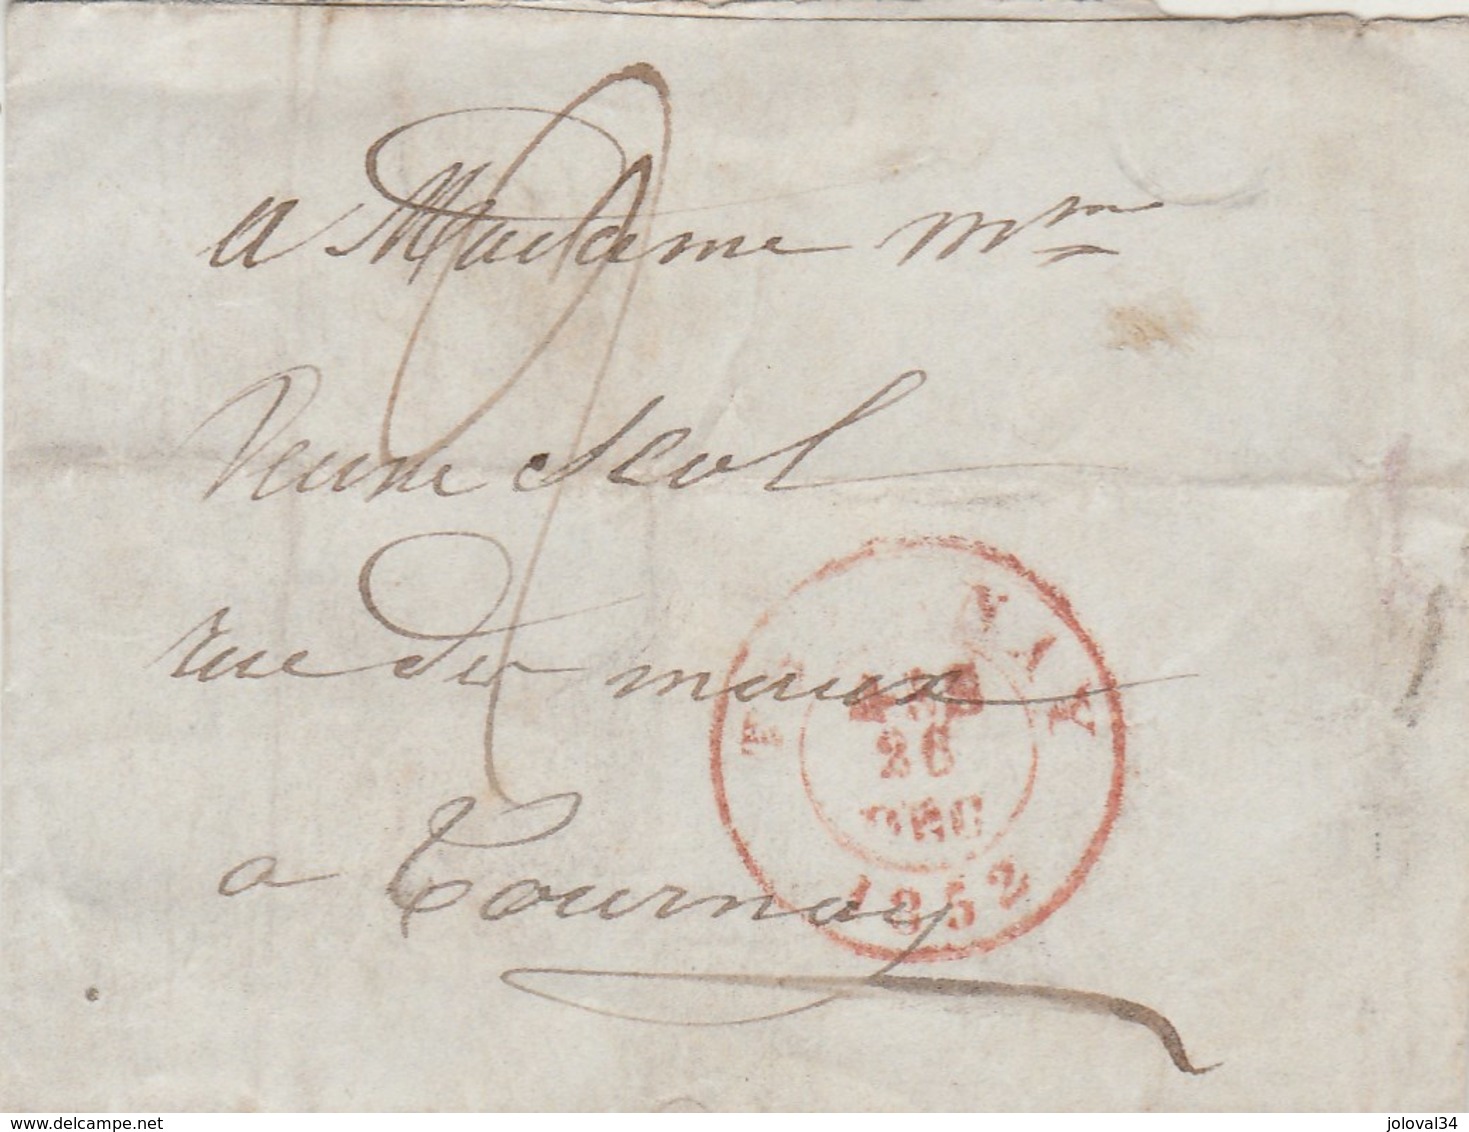 a Madame Mme
Veuve Scol
rue des maux
a Tournay
26
DEC
1852
www.delcampe.net
joloval34